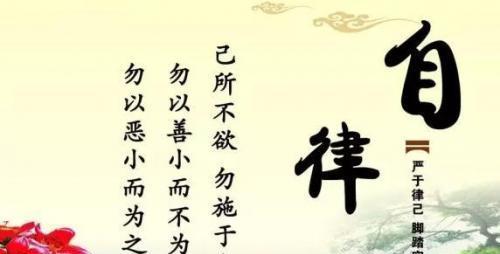 自律
严于律己 脚踏
己所不欲 勿施于
勿以善小而不为
勿以恶小而为之